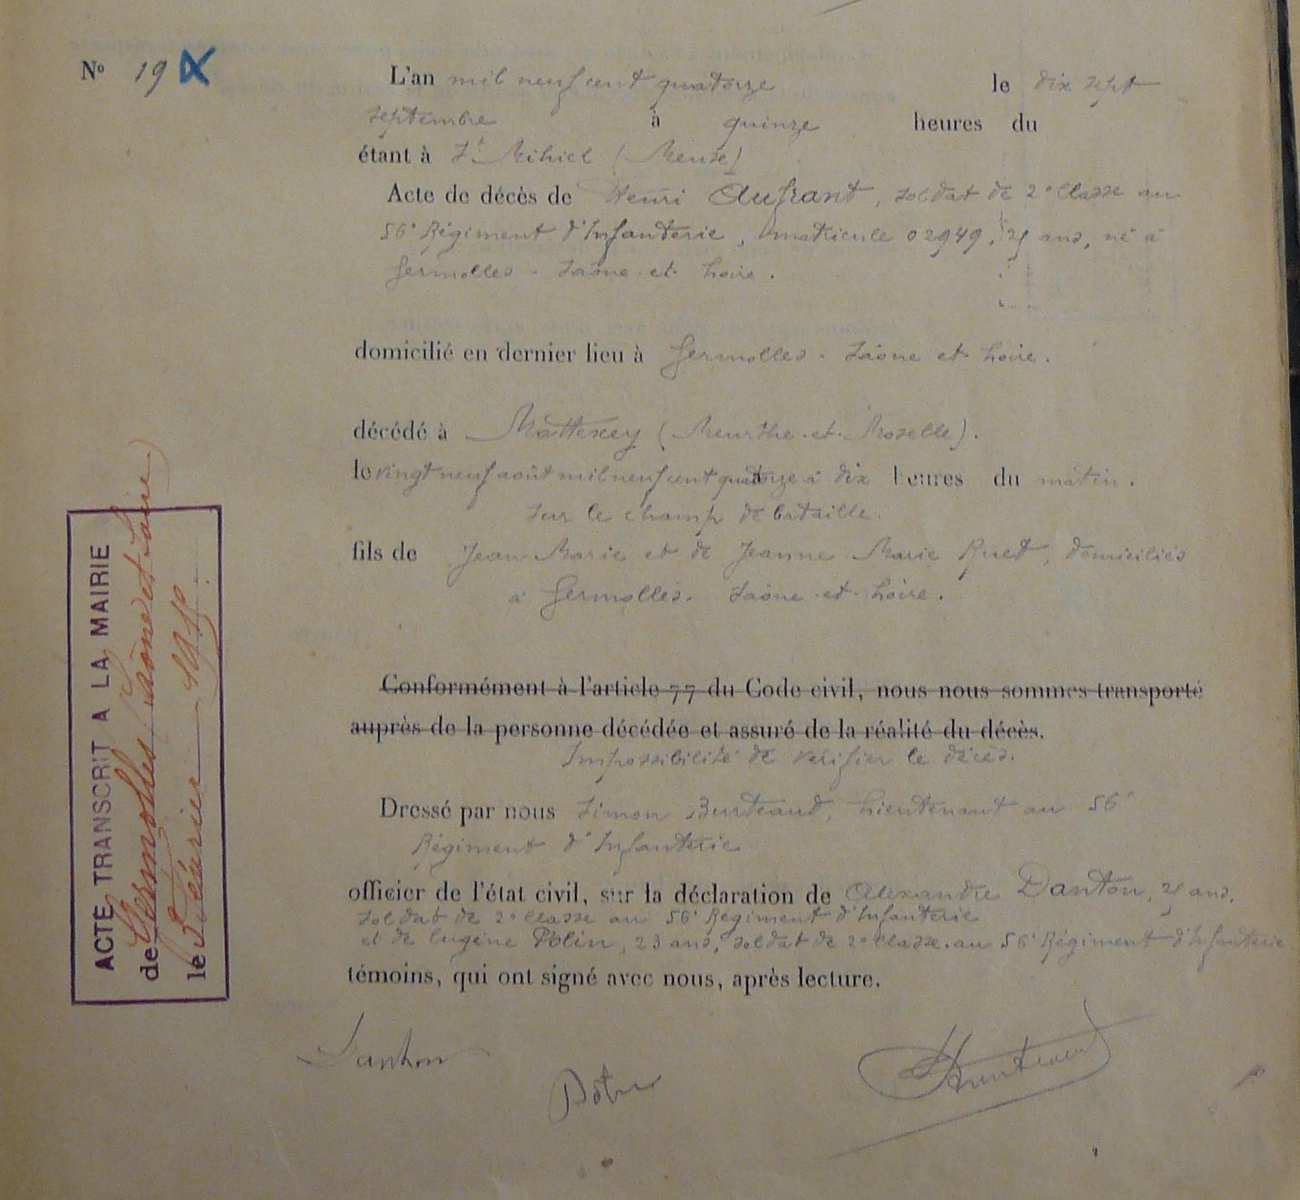 N° 19
L'an mil neuf cent quatorze le dix sept
septembre à quinze heures du
étant à St Mihiel (Meuse)
Acte de décès de Henri Aufrant, soldat de 2e Classe au
56e Régiment d'Infanterie, matricule 02949, 25 ans, né à
Germolles - Saône et Loire.
domicilié en dernier lieu à Germolles - Saône et Loire.
décédé à Mattexey (Meurthe-et-Moselle).
le vingt neuf août mil neuf cent quatorze à dix heures du matin.
Sur le champ de bataille.
fils de Jean Marie et de Jeanne Marie Ruet, domiciliés
à Germolles. Saône-et-Loire.
Conformément à l'article 77 du Code civil, nous nous sommes transporté
auprès de la personne décédée et assuré de la réalité du décès.
Impossibilité de vérifier le décès.
Dressé par nous Simon Burteaud, Lieutenant au 56e
Régiment d'Infanterie
officier de l'état civil, sur la déclaration de Alexandre Danton, 25 ans,
soldat de 2e Classe au 56e Régiment d'Infanterie
et de Eugène Polin, 23 ans, soldat de 2e Classe au 56e Régiment d'Infanterie
témoins, qui ont signé avec nous, après lecture.
ACTE TRANSCRIT A LA MAIRIE
de Germolles (Saône et Loire)
le Février 1915.